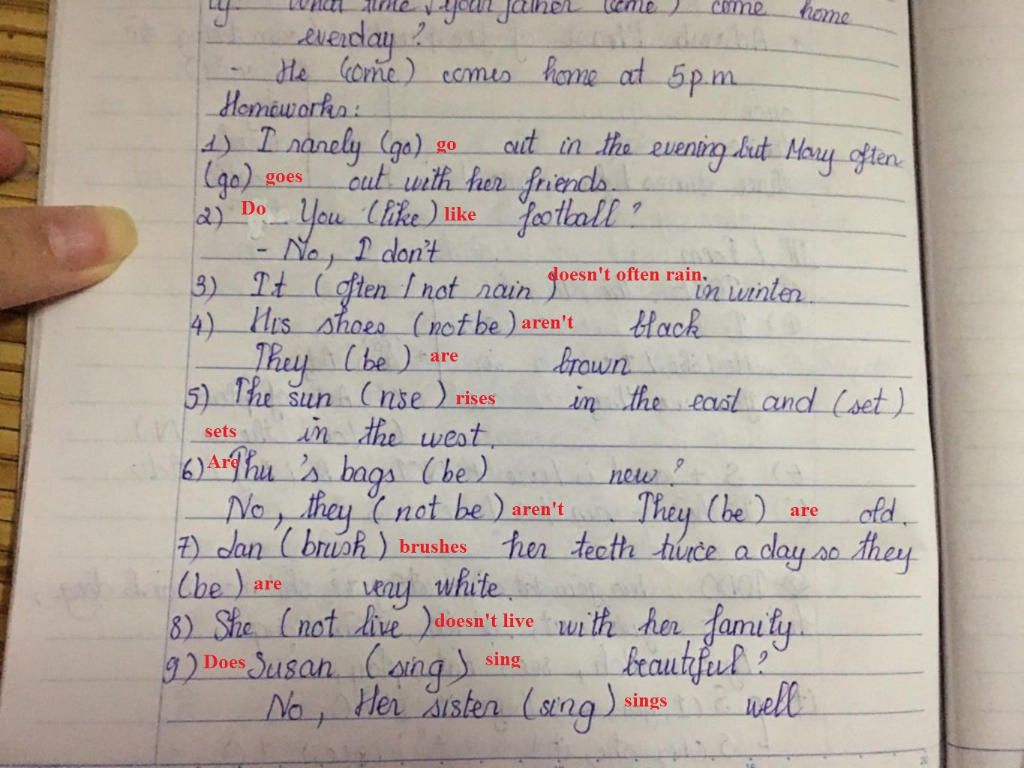 What time your father (come) come home
everday?
- He (come) comes home at 5p.m
Homeworks:
1) I rarely (go) go out in the evening but Mary often
(go) goes out with her friends.
2) Do You (like) like football?
- No, I don't
3) It (often / not rain) doesn't often rain. in winter.
4) His shoes (not be) aren't black
They (be) are brown
5) The sun (rise) rises in the east and (set)
sets in the west.
6) Are Thu 's bags (be) new?
No, they (not be) aren't . They (be) are old.
7) Jan (brush) brushes her teeth twice a day so they
(be) are very white.
8) She (not live) doesn't live with her family.
9) Does Susan (sing) sing beautiful?
No, Her sister (sing) sings well